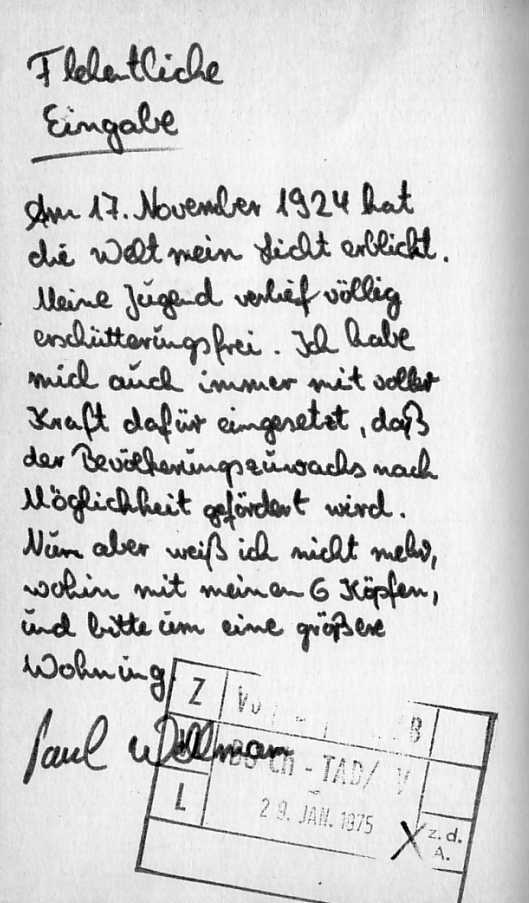 Flehentliche
Eingabe
Am 17. November 1924 hat
die Welt mein Licht erblickt.
Meine Jugend verlief völlig
erschütterungsfrei. Ich habe
mich auch immer mit voller
Kraft dafür eingesetzt, daß
der Bevölkerungszuwachs nach
Möglichkeit gefördert wird.
Nun aber weiß ich nicht mehr,
wohin mit meinen 6 Köpfen,
und bitte um eine größere
Wohnung
Paul Willmann
Z
B
- TAD/ V
L
29. JAN. 1975
z. d.
A.